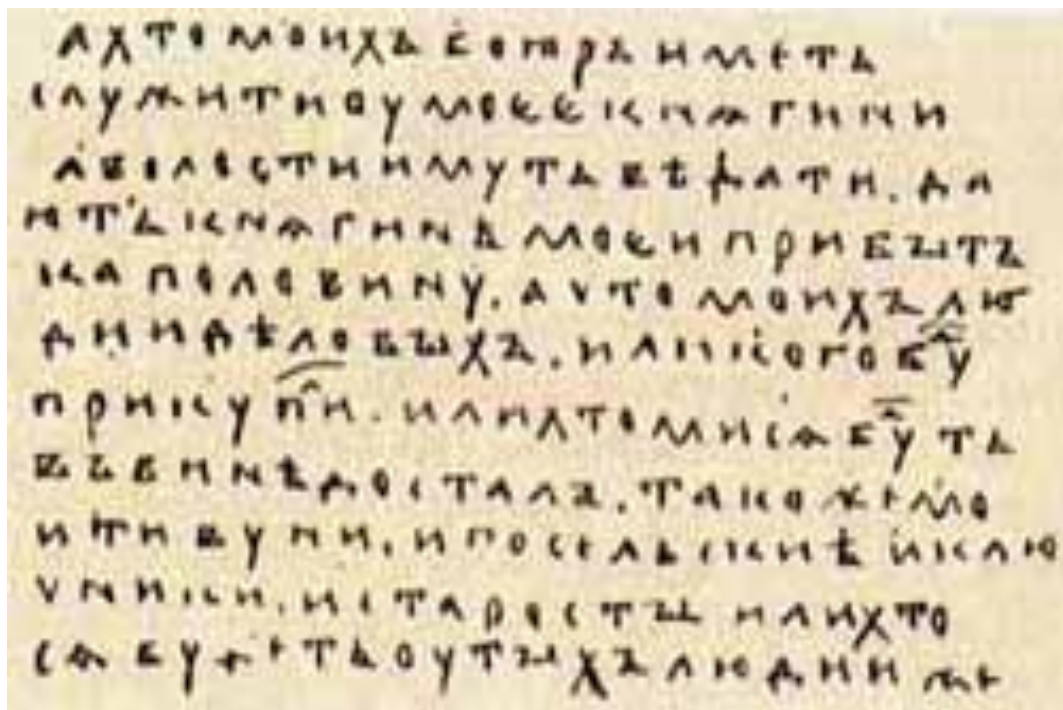 а хто моихъ бояръ иметь
служити оу моее кнѧгини
а волости имуть вѣдати . да
ють кнѧгинѣ моеи прибытъ
ка половину . а хто моихъ лю
дии дѣловыхъ . или кого бу
прикупи . или хто ми сѧ бу ть
въ винѣ досталъ . такоже мо
и тивуни . и посельскиѣ и клю
чники . и старосты или хто
сѧ буде ть оу тыхъ людии же